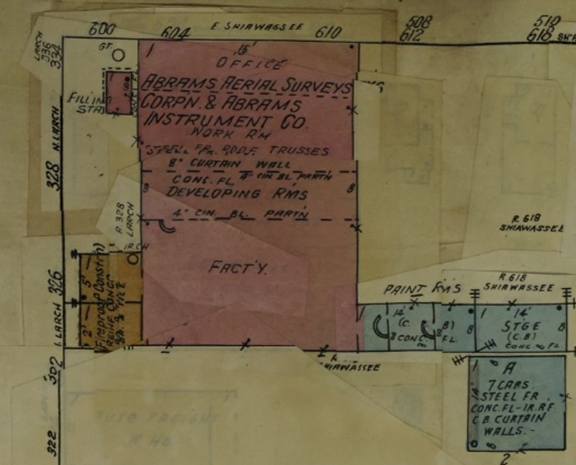 E. SHIAWASSEE
600 604 610 608 612 510 618
LARCH 336 334
GT.
15'
OFFICE
ABRAMS AERIAL SURVEYS
CORPN. & ABRAMS
INSTRUMENT CO.
WORK RM
FILLING
STA
N. LARCH
STEEL FR. ROOF TRUSSES
8" CURTAIN WALL
CONC. FL 8" CIN BL PART'N
DEVELOPING RMS
4" CIN. BL. PARTN
328
R. 328
LARCH
R. 618
SHIAWASSEE
FACT'Y.
326
(Fireproof Constr'n)
PAINT RMS
R. 618
SHIAWASSEE
14'
(C.B)
CONC. FL
14'
STGE
(C.B)
CONC. FL
LARCH
302
SHIAWASSEE
A
7 CARS
STEEL FR.
CONC. FL-IR. RF
C.B. CURTAIN
WALLS.-
322
2